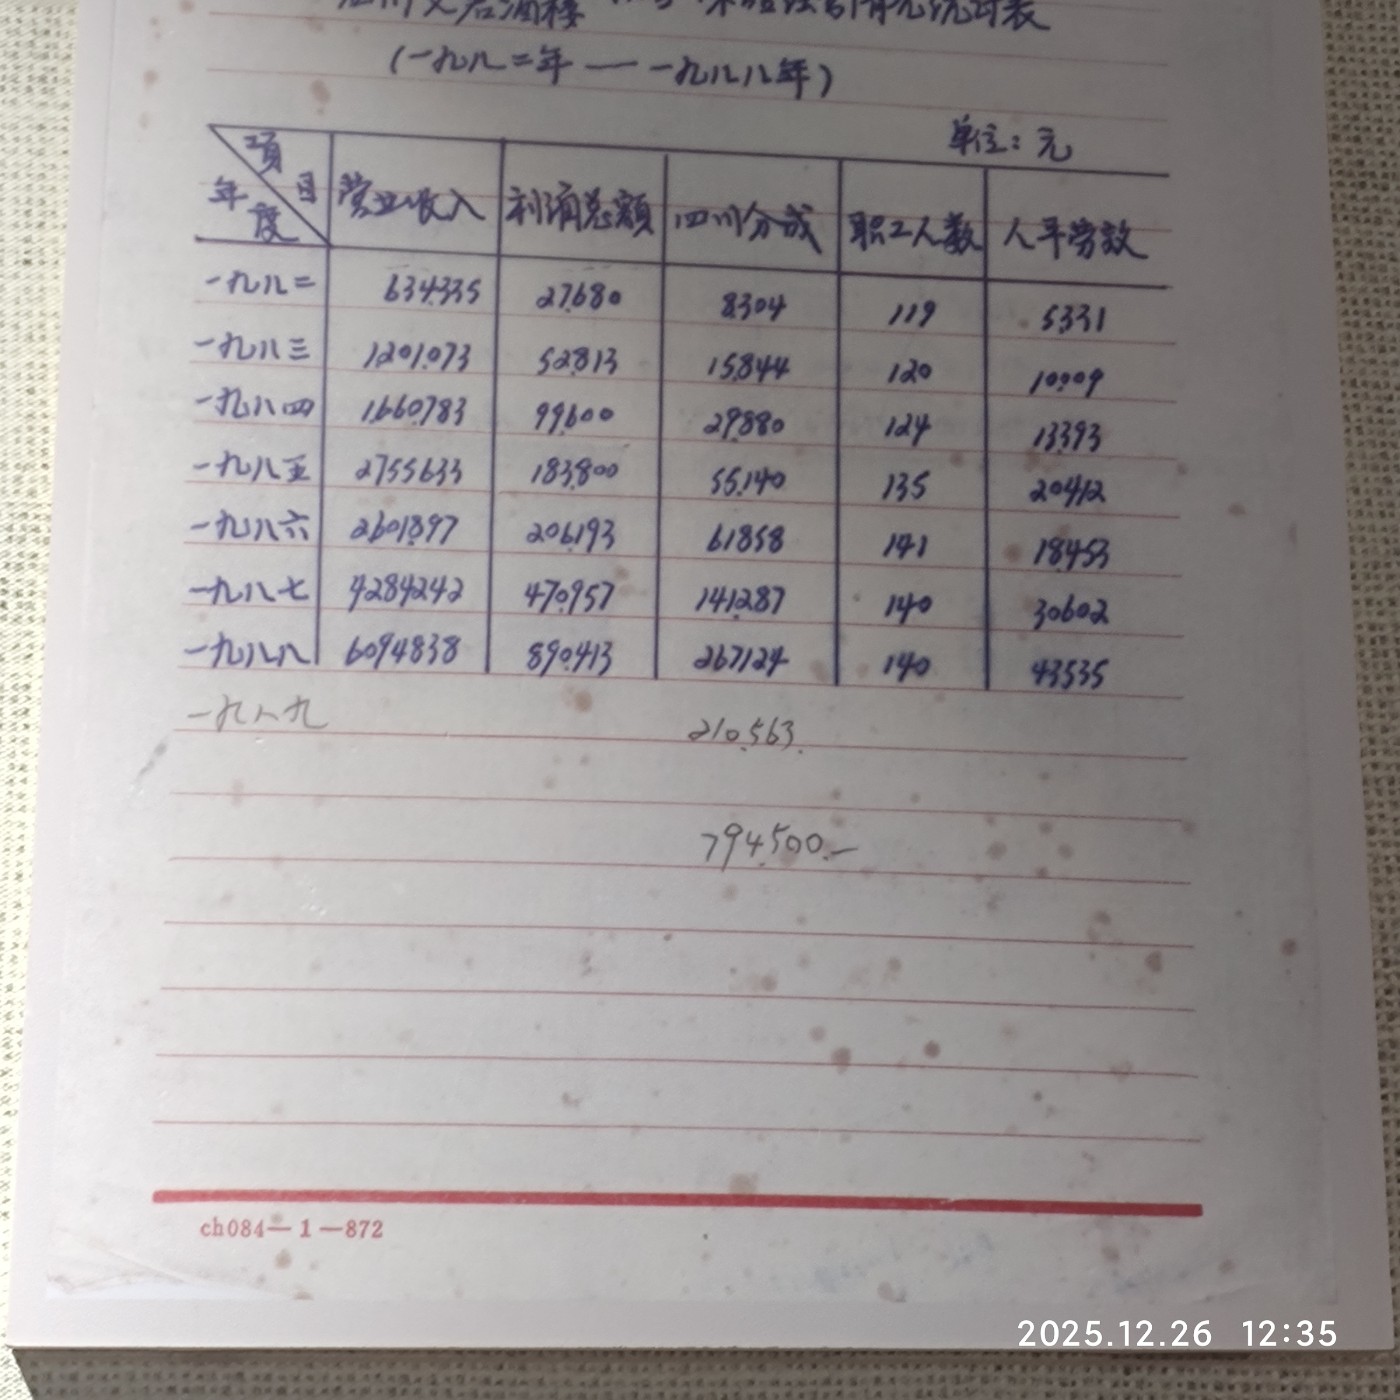 文君酒楼 经营情况统计表
(一九八二年 — 一九八八年)
单位：元
项目 年度 营业收入 利润总额 四川分成 职工人数 人平劳效
一九八二 634335 27680 8304 119 5331
一九八三 1201073 52813 15844 120 10009
一九八四 1660783 99600 29880 124 13393
一九八五 2755633 183800 55140 135 20412
一九八六 2601897 206193 61858 141 18453
一九八七 4284242 470957 141287 140 30602
一九八八 6094838 890413 267124 140 43535
一九八九 210.563.
794.500.—
ch084—1—872
2025.12.26 12:35